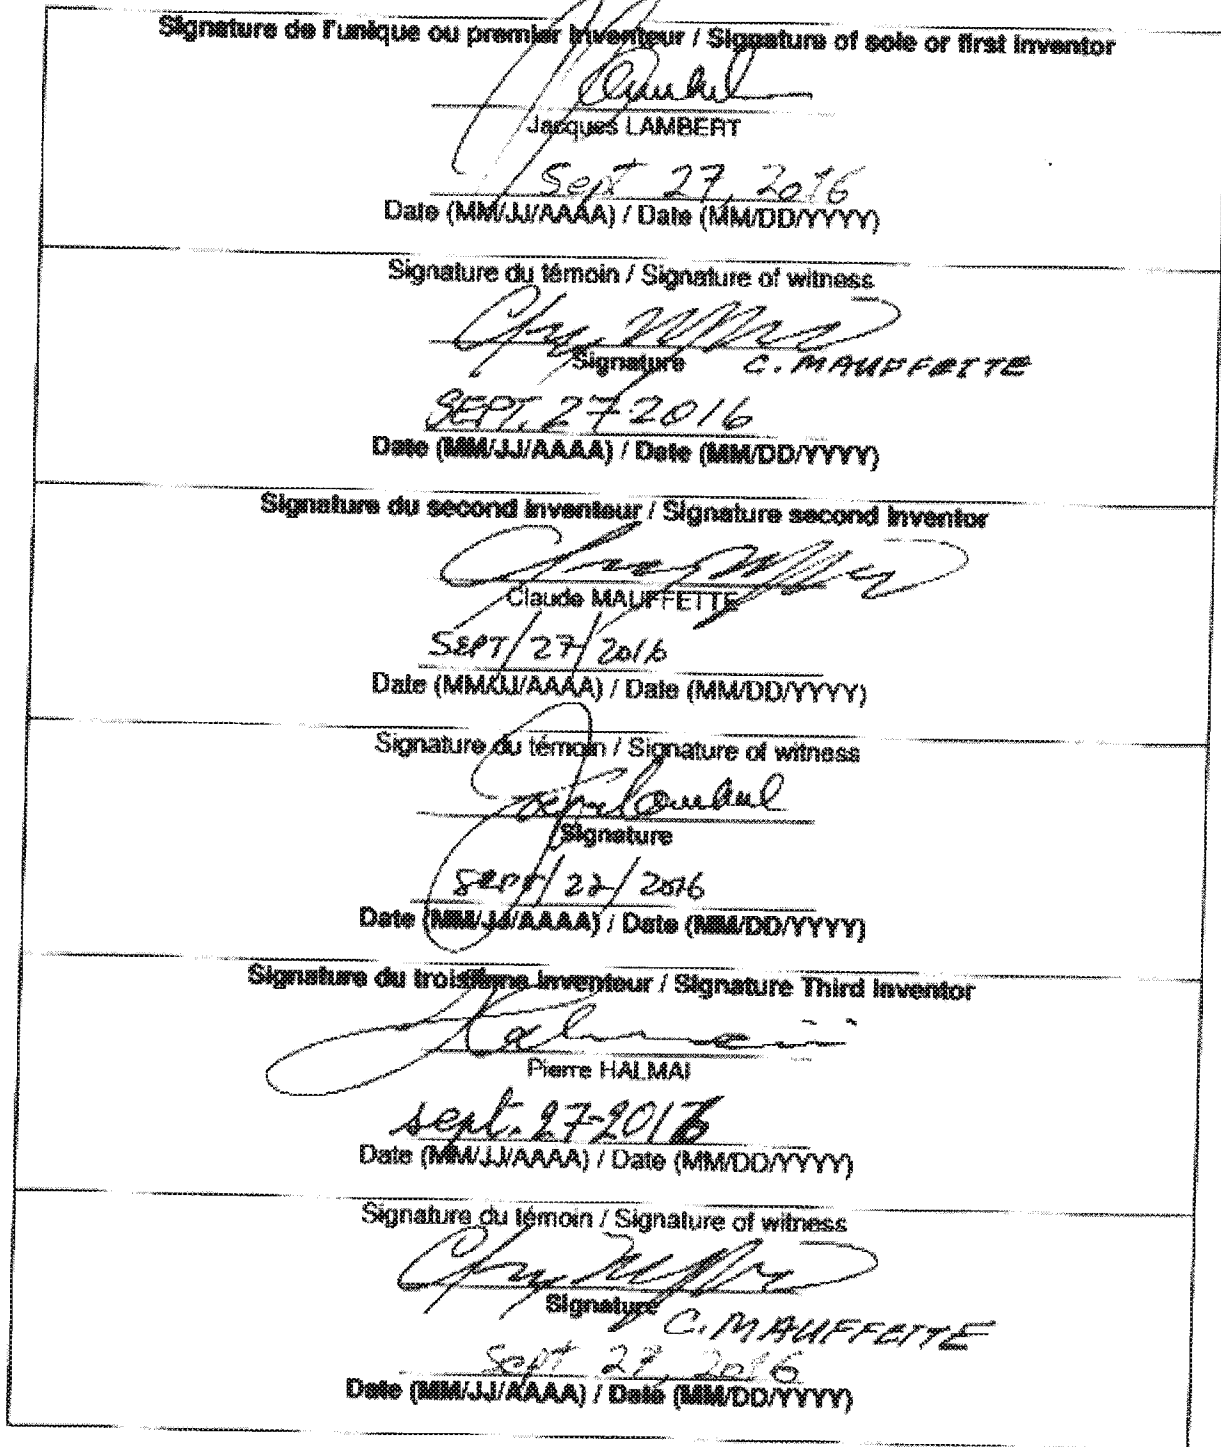 Signature de l'unique ou premier inventeur / Signature of sole or first inventor
Lambert
Jacques LAMBERT
Sept 27, 2016
Date (MM/JJ/AAAA) / Date (MM/DD/YYYY)
Signature du témoin / Signature of witness
Signature C. MAUFFETTE
SEPT. 27-2016
Date (MM/JJ/AAAA) / Date (MM/DD/YYYY)
Signature du second inventeur / Signature second inventor
Claude MAUFFETTE
SEPT/27/2016
Date (MM/JJ/AAAA) / Date (MM/DD/YYYY)
Signature du témoin / Signature of witness
Lambert
Signature
Date (MM/JJ/AAAA) / Date (MM/DD/YYYY)
Signature du troisième inventeur / Signature Third inventor
Halmai
Pierre HALMAI
sept. 27-2016
Date (MM/JJ/AAAA) / Date (MM/DD/YYYY)
Signature du témoin / Signature of witness
Signature C. MAUFFETTE
Sept 27, 2016
Date (MM/JJ/AAAA) / Date (MM/DD/YYYY)